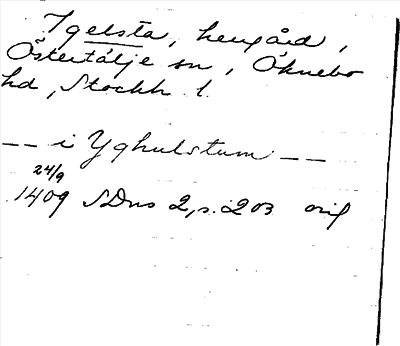 Igelsta, herrgård,
Östertälje sn, Öknebo
hd, Stockh. l.
-- i Yghulstum --
24/9
1409 SDns 2, s. 203 orig